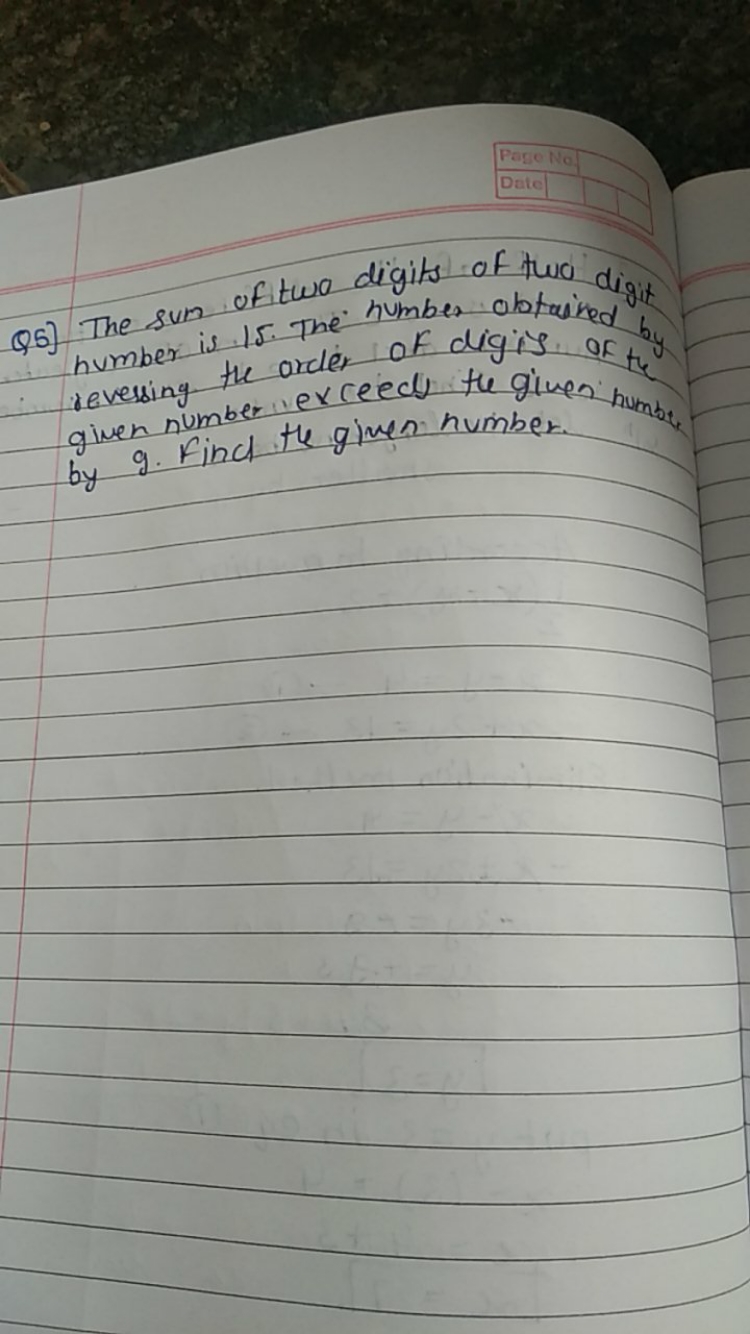 Page No.
Date
Q5] The sum of two digits of two digit
number is 15. The number obtained by
revessing the order of digis of the
given number exceeds the given number
by 9. Find the given number.